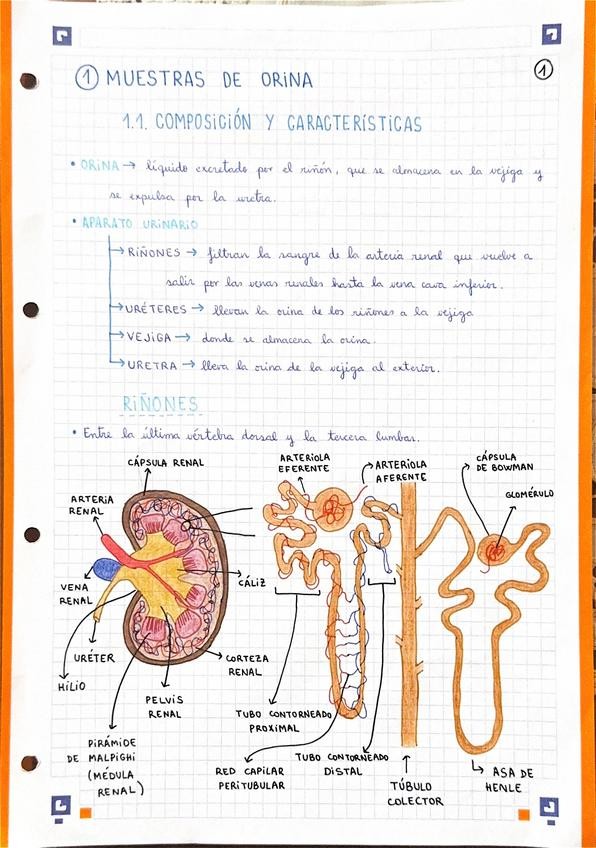 ① MUESTRAS DE ORINA
①
1.1. COMPOSICIÓN Y CARACTERÍSTICAS
• ORINA → líquido excretado por el riñón, que se almacena en la vejiga y
se expulsa por la uretra.
• APARATO URINARIO
→ RIÑONES → filtran la sangre de la arteria renal que vuelve a
salir por las venas renales hasta la vena cava inferior.
→ URÉTERES → llevan la orina de los riñones a la vejiga
→ VEJIGA → donde se almacena la orina.
→ URETRA → lleva la orina de la vejiga al exterior.
RIÑONES
• Entre la última vértebra dorsal y la tercera lumbar.
CÁPSULA RENAL
ARTERIA
RENAL
VENA
RENAL
URÉTER
HÍLIO
PIRÁMIDE
DE MALPIGHI
(MÉDULA
RENAL)
PELVIS
RENAL
CORTEZA
RENAL
CÁLIZ
ARTERIOLA
EFERENTE
ARTERIOLA
AFERENTE
TUBO CONTORNEADO
PROXIMAL
RED CAPILAR
PERITUBULAR
TUBO CONTORNEADO
DISTAL
TÚBULO
COLECTOR
CÁPSULA
DE BOWMAN
GLOMÉRULO
ASA DE
HENLE